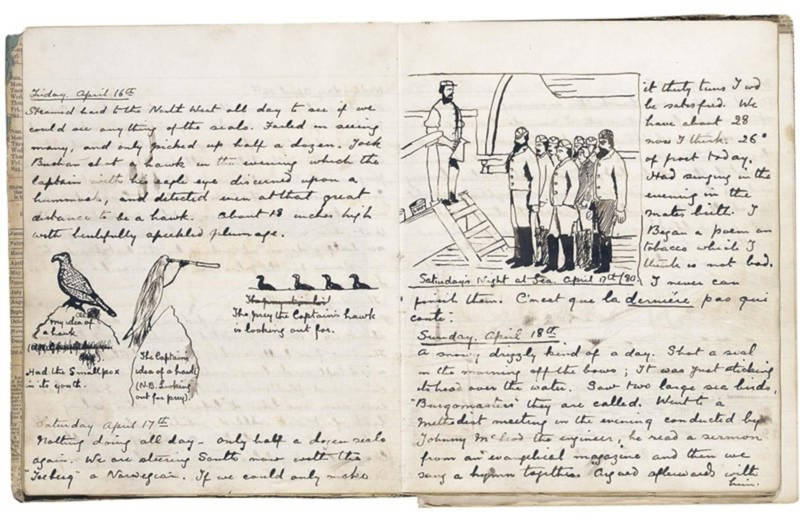 Friday April 16th
Steamed hard to the North West all day to see if we
could see anything of the seals. Failed in seeing
many, and only picked up half a dozen. Jock
Buchan shot a hawk in the evening which the
captain with his eagle eye discerned upon a
hummock, and detected even at that great
distance to be a hawk. About 18 inches high
with beautifully speckled plumage.
My idea of
a hawk
Had the Small pox
in its youth.
The Captains
idea of a hawk
(N.B. Looking
out for prey).
The prey the Captain's hawk
is looking out for.
Saturday April 17th
Nothing doing all day - only half a dozen seals
again. We are steering South now with the
"Iceberg" a Norwegian. If we could only make
it thirty tuns I wd
be satisfied. We
have about 28
now I think. 26°
of frost today.
Had singing in the
evening in the
mates berth. I
Began a poem on
tobacco which I
think is not bad.
Saturday's Night at Sea. April 17th/80.
I never can
finish them. C'est que la dernière pas qui
coute.
Sunday. April 18th
A snowy, drizzly kind of a day. Shot a seal
in the morning off the bows; It was just sticking
its head over the water. Saw two large sea birds,
"Burgomasters" they are called. Went to a
Methodist meeting in the evening conducted by
Johnny McLeod the engineer, he read a sermon
from an evangelical magazine and then we
sang a hymn together. Argued afterwards with
him.